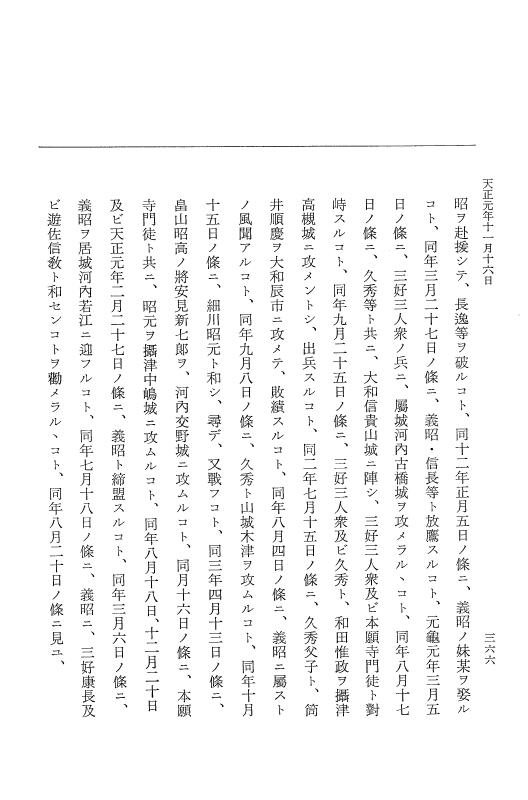 天正元年十一月十六日
三六六
昭ヲ赴援シテ、長逸等ヲ破ルコト、同十二年正月五日ノ條ニ、義昭ノ妹某ヲ娶ル
コト、同年三月二十七日ノ條ニ、義昭・信長等ト放鷹スルコト、元龜元年三月五
日ノ條ニ、三好三人衆ノ兵ニ、屬城河內古橋城ヲ攻メラルヽコト、同年八月十七
日ノ條ニ、久秀等ト共ニ、大和信貴山城ニ陣シ、三好三人衆及ビ本願寺門徒ト對
峙スルコト、同年九月二十五日ノ條ニ、三好三人衆及ビ久秀ト、和田惟政ヲ攝津
高槻城ニ攻メントシ、出兵スルコト、同二年七月十五日ノ條ニ、久秀父子ト、筒
井順慶ヲ大和辰市ニ攻メテ、敗績スルコト、同年八月四日ノ條ニ、義昭ニ屬スト
ノ風聞アルコト、同年九月八日ノ條ニ、久秀ト山城木津ヲ攻ムルコト、同年十月
十五日ノ條ニ、細川昭元ト和シ、尋デ、又戰フコト、同三年四月十三日ノ條ニ、
畠山昭高ノ將安見新七郎ヲ、河內交野城ニ攻ムルコト、同月十六日ノ條ニ、本願
寺門徒ト共ニ、昭元ヲ攝津中嶋城ニ攻ムルコト、同年八月十八日、十二月二十日
及ビ天正元年二月二十七日ノ條ニ、義昭ト締盟スルコト、同年三月六日ノ條ニ、
義昭ヲ居城河內若江ニ迎フルコト、同年七月十八日ノ條ニ、義昭ニ、三好康長及
ビ遊佐信敎ト和センコトヲ勸メラルヽコト、同年八月二十日ノ條ニ見ユ、